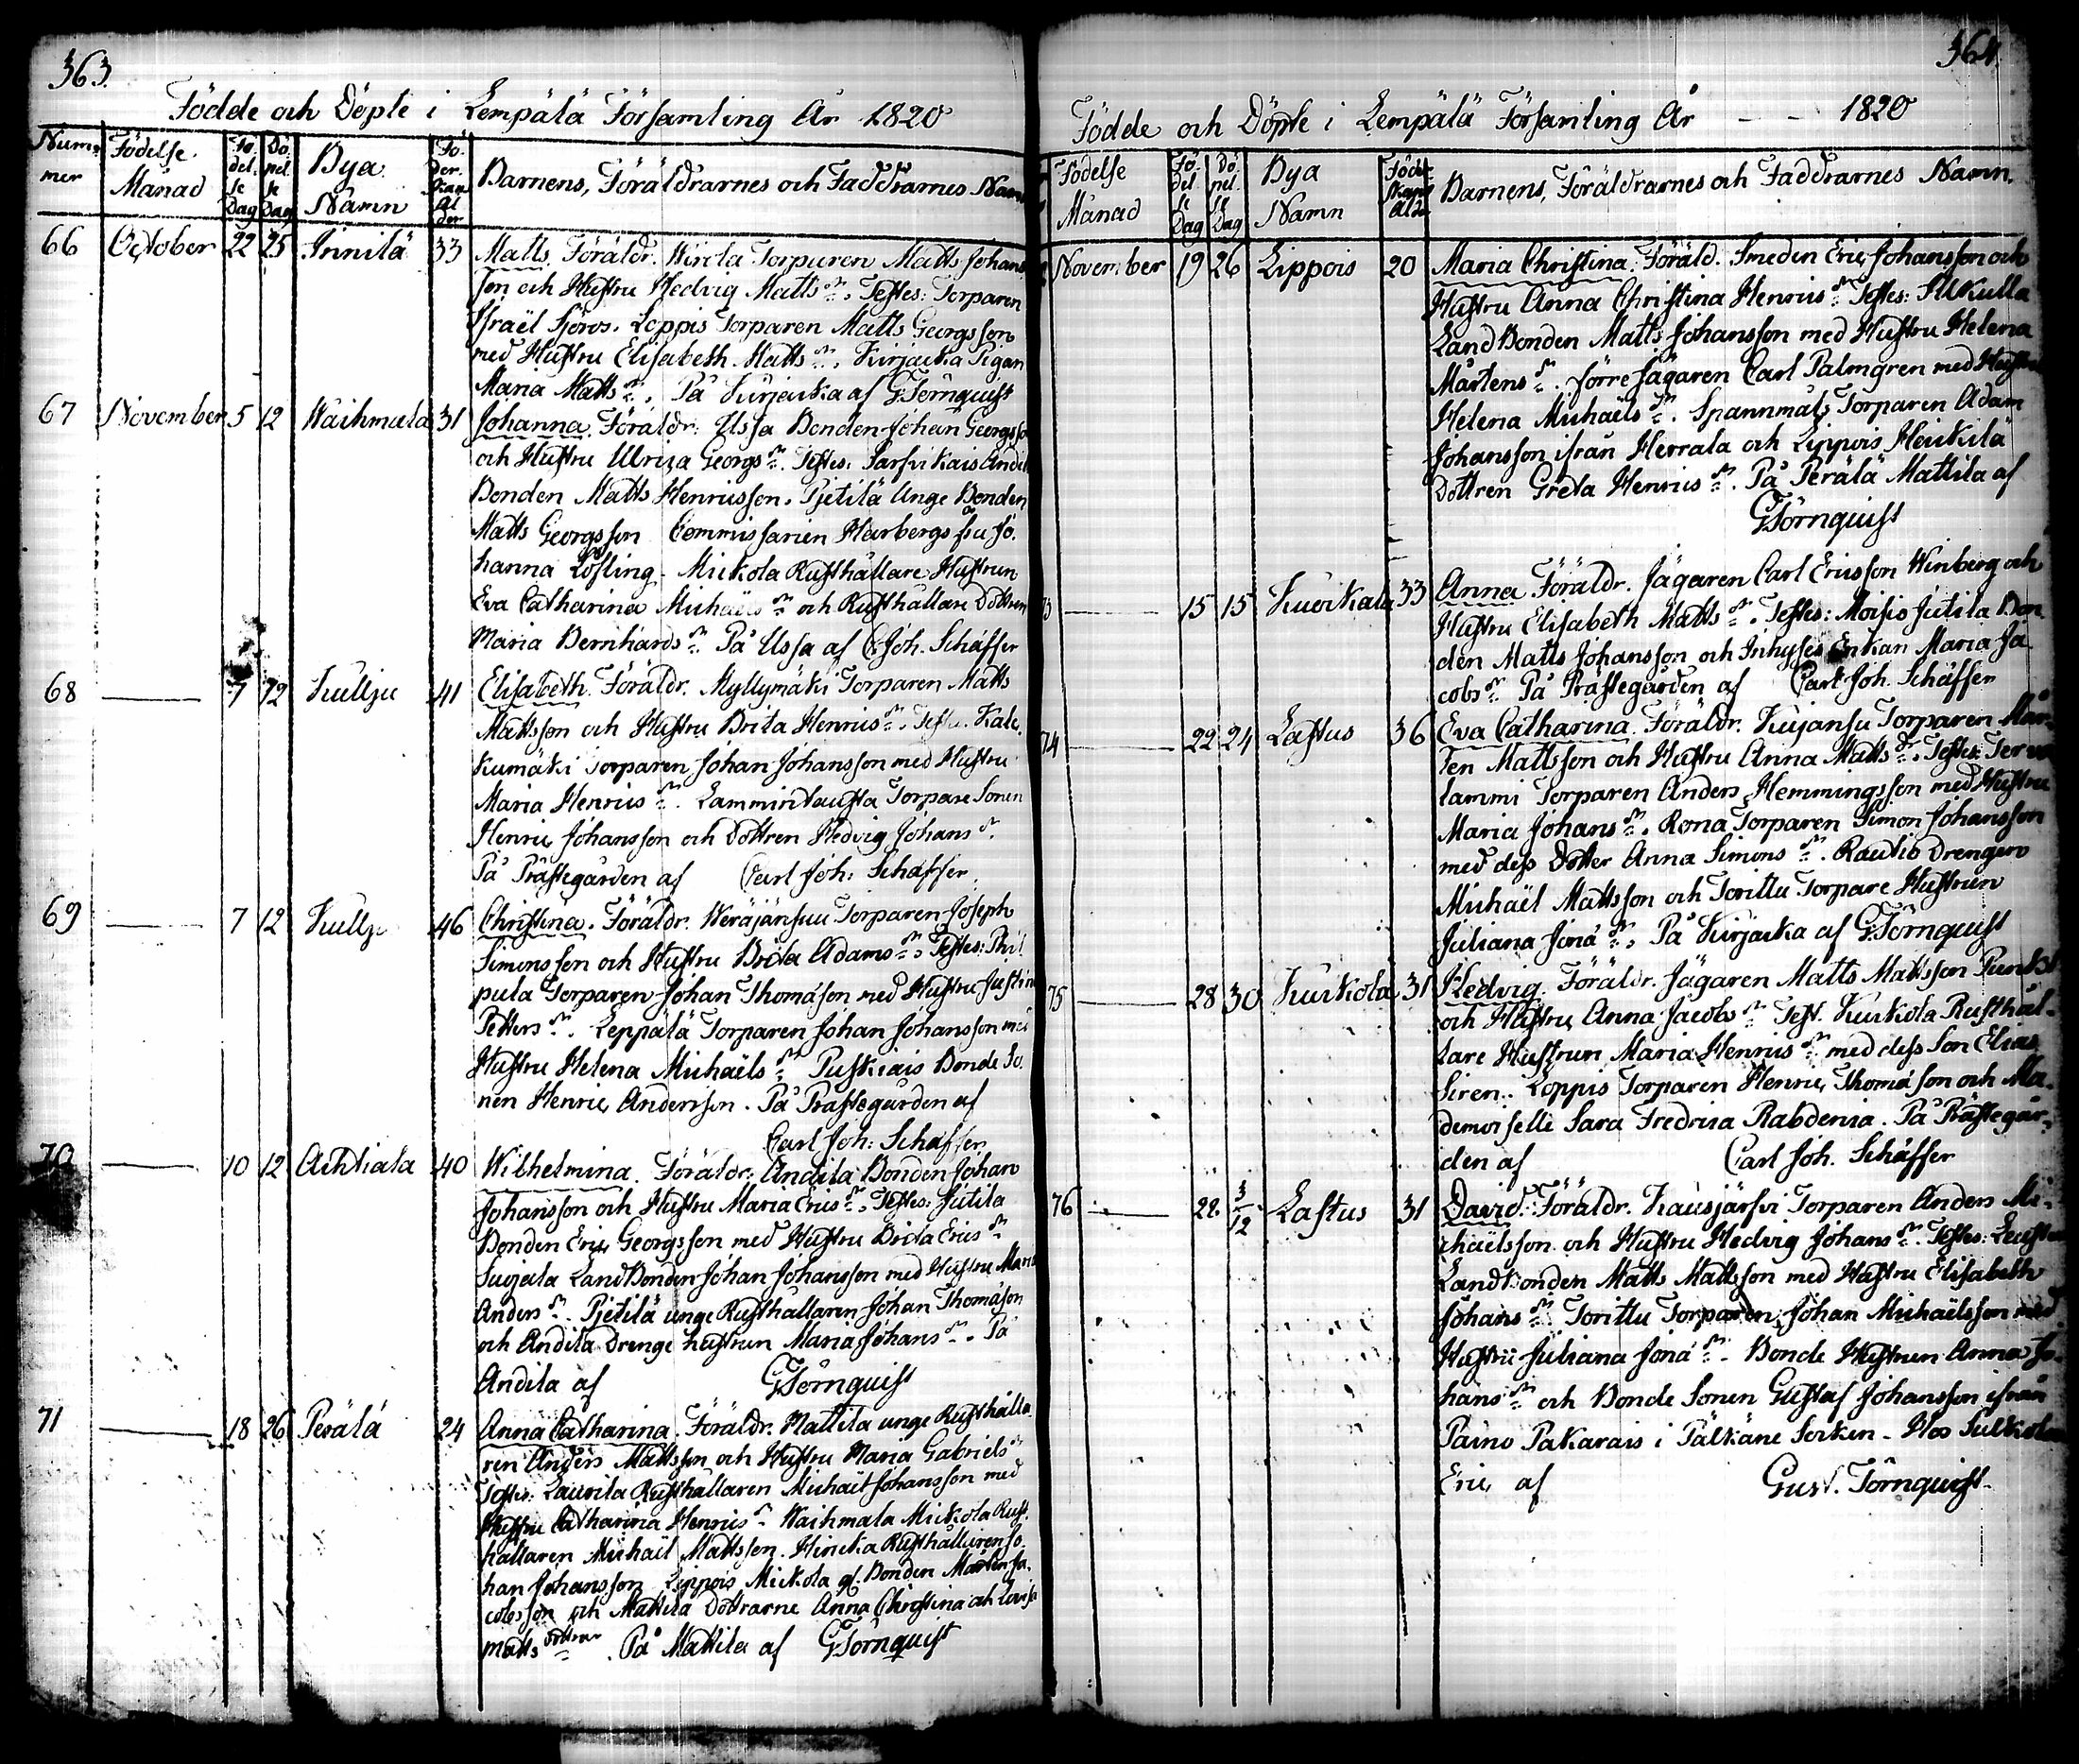 363.
Födde och Döpte i Lempälä Församling År 1820
Num- mer
Födelse Månad
Fö- del- se Dag
Dö- pel- se Dag
Bya Namn
Fö- der- skans Ål- der
Barnens, Föräldrarnes och Faddrarnes Namn
66 October 22 25 Innilä 33 Matts. Föräldr. Wirola Torparen Matts Johans
son och Hustru Hedvig Matts dr. Testes: Torparen
Israël Sjöros. Loppis Torparen Matts Georgsson
med Hustru Elisabeth Matts dr. Kurjacka Pigan
Maria Matts dr. På Kurjacka af GTörnquist
67 November 5 12 Waihmala 31 Johanna. Föräldr. Ussa Bonden Johan Georgsso
och Hustru Ulrica Georgs dr. Testes: Sarfvikais
Bonden Matts Henricsson. Pjetilä Unge Bonden
Matts Georgsson Commissarien Harbergs fru Jo-
hanna Löfling. Mickola Rusthållare Hustrun
Eva Catharina Michaels dr och Rusthållare Dottren
Maria Bernhards dr På Ussa af C Joh. Schäffer
68 7 12 Kullju 41 Elisabeth. Föräldr. Myllymäki Torparen Matts
Mattsson och Hustru Brita Henrics dr. Testes. Kale-
kumäki Torparen Johan Johansson med Hustru
Maria Henrics dr. Lamminkausta Torpare Sonen
Henric Johansson och Dottren Hedvig Johans dr.
På Prästegården af Carl Joh: Schäffer
69 7 12 Kullju 46 Christina. Föräldr. Weräjänsuu Torparen Joseph
Simonsson och Hustru Brita Adams dr. Testes: Phil-
pula Torparen Johan Thomäson med Hustru Justina
Petters dr. Leppälä Torparen Johan Johansson med
Hustru Helena Michaëls dr Puskiais Bonde So-
nen Henric Andersson. På Prästegården af
Carl Joh: Schäffer.
70 10 12 Ahtiala 40 Wilhelmina. Föräldr: Andila Bonden Johan
Johansson och Hustru Maria Erics dr. Testes: Jutila
Bonden Eric Georgsson med Hustru Brita Erics dr
Suojala LandBonden Johan Johansson med Hustru Maria
Anders dr. Pjetilä unge Rusthållaren Johan Thomäson
och Andila Drenge hustrun Maria Johans dr. På
Andila af GTörnquist
71 18 26 Perälä 24 Anna Catharina. Föräldr. Mattila unge Rusthålla-
ren Anders Mattsson och Hustru Maria Gabriels dr
Testes. Laurila Rusthållaren Michaël Johansson med
Hustru Catharina Henrics dr Waihmala Mickola Rust-
hållaren Michaël Mattsson. Hincka Rusthållaren Jo-
han Johansson Lippois Mickola gl. Bonden Mårten Ja-
cobsson och Mattila Döttrarne Anna Christina och Lovisa
Matts Döttrar. På Mattila af GTörnquist
364.
Födde och Döpte i Lempälä Församling År — — 1820
Födelse Månad
Fö- del- se Dag
Dö- pel- se Dag
Bya Namn
Föder- skans Åld.
Barnens, Föräldrarnes och Faddrarnes Namn.
November 19 26 Lippois 20 Maria Christina. Föräld. Smeden Eric Johansson och
Hustru Anna Christina Henrics dr Testes: Sukulla
LandBonden Matts Johansson med Hustru Helena
Mårtens dr. förre Jägaren Carl Palmgren med Hustru
Helena Michaëls dr. Spannmåls Torparen Adam
Johansson ifrån Herrala och Lippois Heikilä
Dottren Greta Henrics dr. På Perälä Mattila af
GTörnquist
73 15 15 Kuorkala 33 Anna Föräldr. Jägaren Carl Ericsson Winberg och
Hustru Elisabeth Matts dr. Testes: Moisio Jutila Bon-
den Matts Johansson och Inhyses Enkan Maria Ja-
cobs dr På Prästegården af Carl Joh. Schäffer
74 22 24 Lastus 36 Eva Catharina. Föräldr. Kujansu Torparen Mår-
ten Mattsson och Hustru Anna Matts dr. Testes: Terva-
lammi Torparen Anders Hemmingsson med Hustru
Maria Johans dr. Rona Torparen Simon Johansson
med dess Dotter Anna Simons dr. Rautio Drengen
Michaël Mattsson och Torittu Torpare Hustrun
Juliana Jona dr. På Kurjacka af GTörnquist
75 28 30 Kuckola 31 Hedvig. Föräldr. Jägaren Matts Mattsson
och Hustru Anna Jacobs dr Test. Kuckola Rusthål-
lare Hustrun Maria Henrics dr med dess Son Elias
Siren. Loppis Torparen Henric Thomäson och Ma-
demoiselle Sara Fredrica Rabdenia. På Prästegår-
den af Carl Joh. Schäffer
76 28. 3/12 Lastus 31 David. Föräldr. Kausjärfvi Torparen Anders Mi-
chaëlsson och Hustru Hedvig Johans dr. Testes:
Landbonden Matts Mattsson med Hustru Elisabeth
Johans dr. Torittu Torparen Johan Michaëlsson med
Hustru Juliana Jona dr. Bonde Hustrun Anna Jo-
hans dr och Bonde Sonen Gustaf Johansson ifrån
Paino Pakarais i Pälkäne Socken. Hos
Eric af Gust. Törnquist.